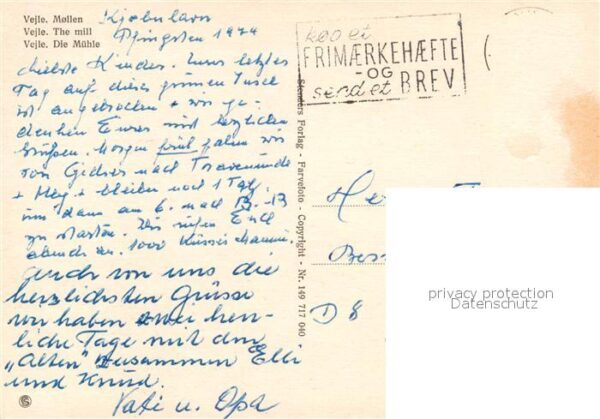 Vejle. Møllen
Vejle. The mill
Vejle. Die Mühle
Pfingsten 1974
Liebste Kinder. Unser letzter
Tag auf dieser grünen Insel
ist angebrochen + wir ge-
denken Eurer mit herzlichen
Grüßen. Morgen früh fahren wir
von Gedser nach Travemünde
+ Hbg + bleiben noch 1 Tag,
um dann am 6. nach B.-B
zu starten. Wir rufen Euch
abends an. 1000 Küsse
Auch von uns die
herzlichsten Grüsse
wir haben zwei herr-
liche Tage mit den
„Alten" zusammen Elli
und Knud.
Vati u. Opa
køb et
FRIMÆRKEHÆFTE
-OG
send et BREV
Stenders Forlag - Farvefoto - Copyright - Nr. 149 717 040
D 8
privacy protection
Datenschutz